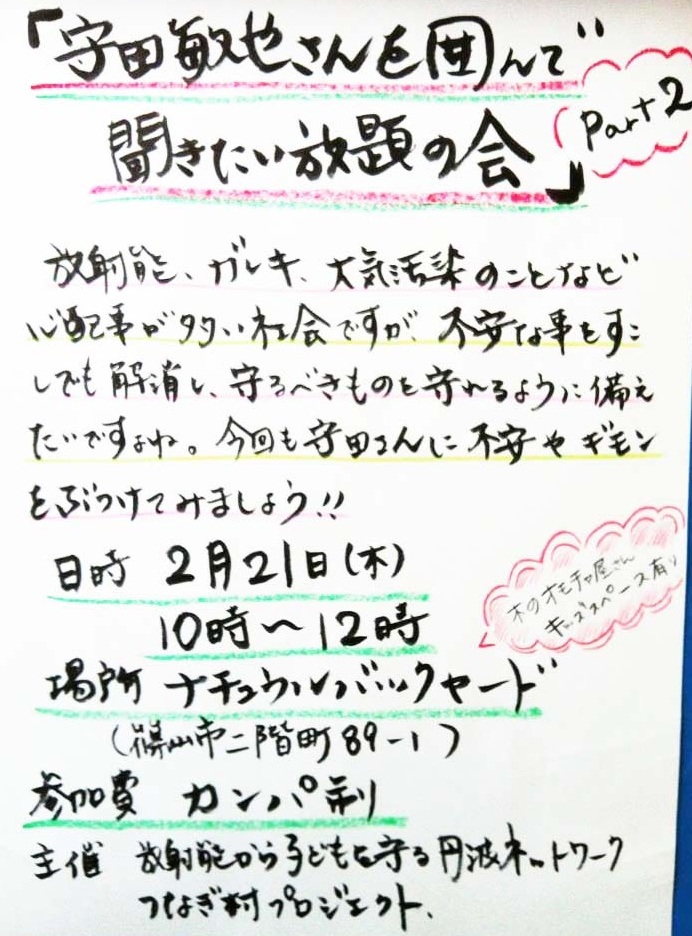 「守田敏也さんを囲んで
聞きたい放題の会」
Part2
放射能、ガレキ、大気汚染のことなど
心配事が多い社会ですが、不安な事をすこ
しでも解消し、守るべきものを守れるように備え
たいですよね。今回も守田さんに不安やギモン
をぶつけてみましょう!!
日時 2月21日(木)
10時〜12時
木のオモチャ屋さん
キッズスペース有り
場所 ナチュラルバックヤード
(篠山市二階町89-1)
参加費 カンパ制
主催 放射能から子どもを守る丹波ネットワーク
つなぎ村プロジェクト、